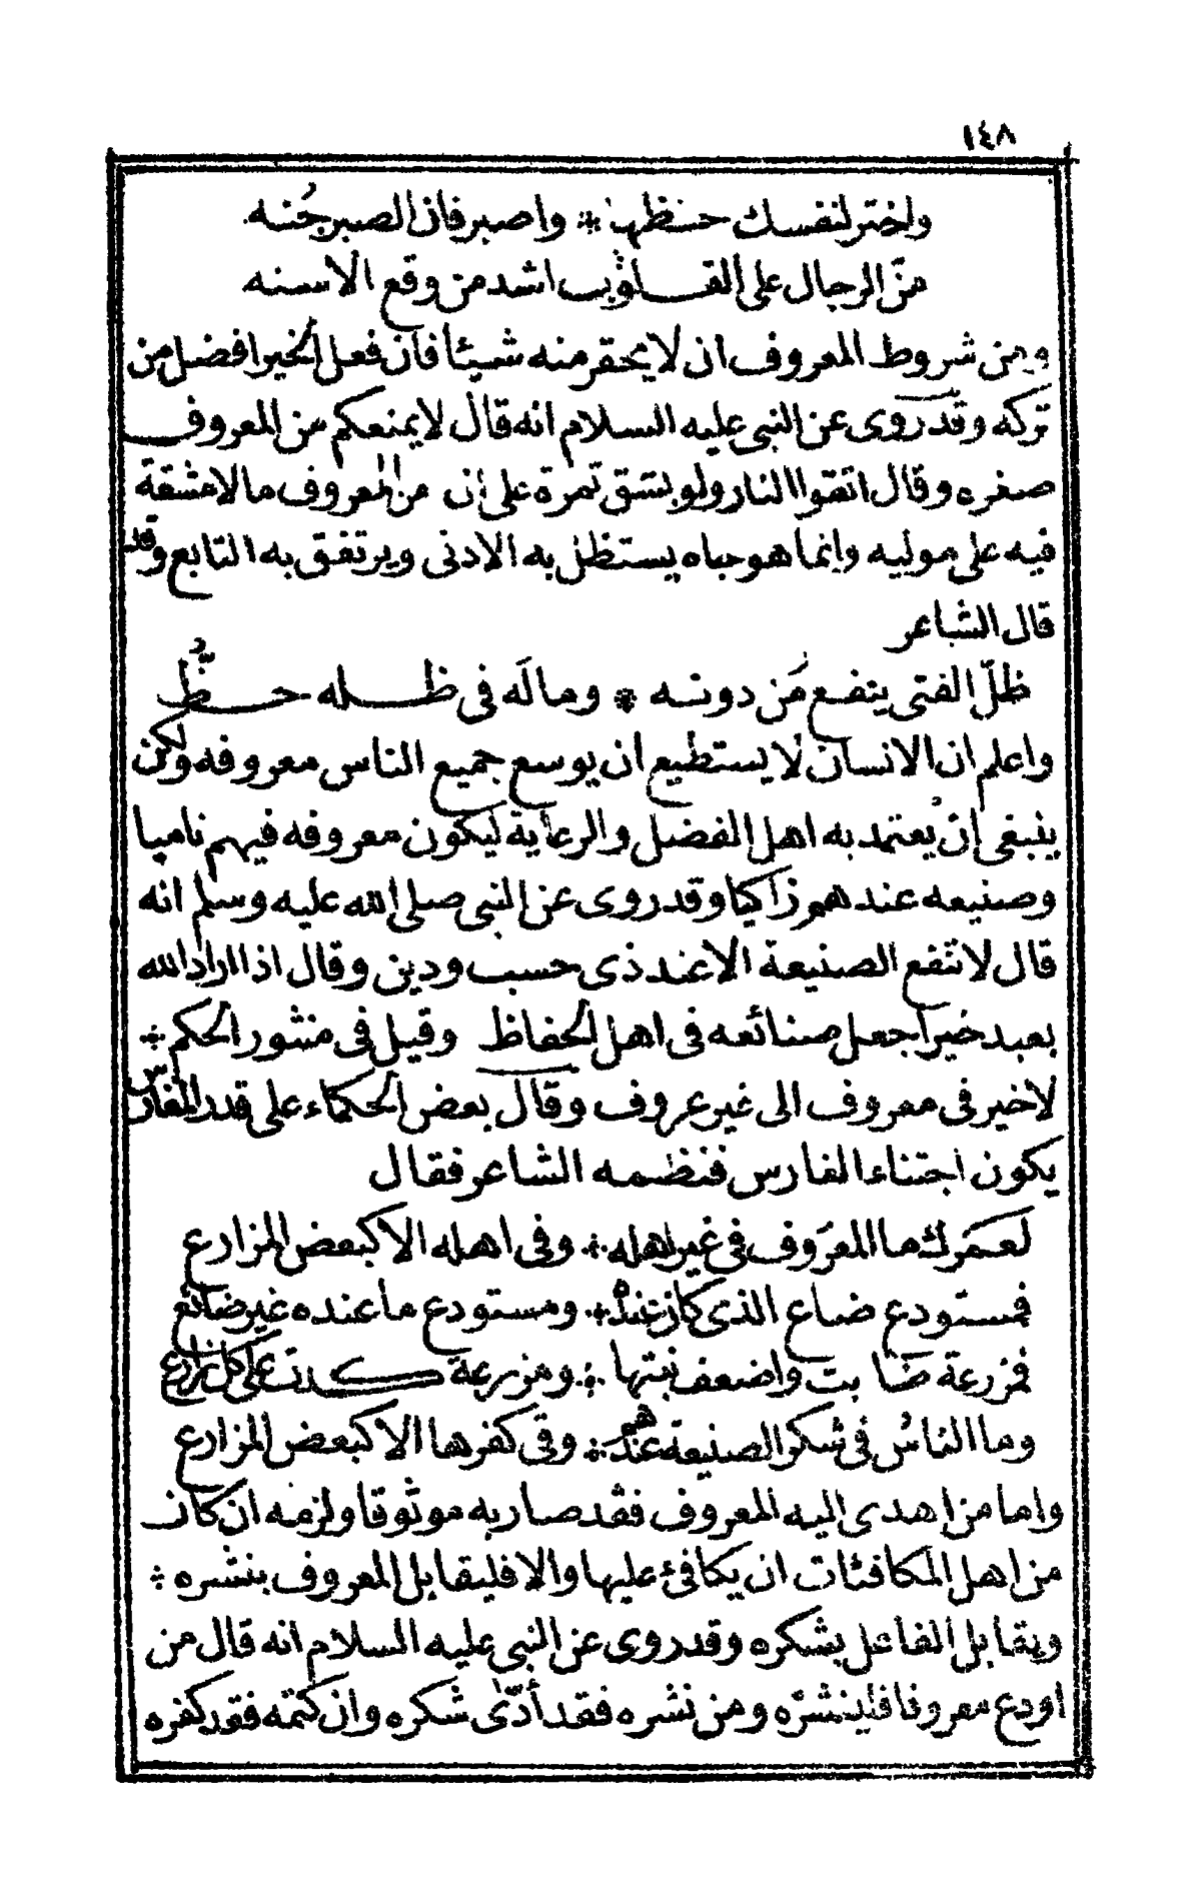 ١٤٨
واختر لنفسك حسظها * واصبر فان الصبر جُنه
منّ الرجال على القلوب اشد من وقع الاسنه
ومن شروط المعروف ان لا يحقر منه شيئا فان فعل الخير افضل من
تركه وقد روى عن النبى عليه السلام انه قال لا يمنعكم من المعروف
صغره وقال اتقوا النار ولو بشق تمرة على ان من المعروف مالا مشقة
فيه على موليه وانما هو جاه يستظل به الادنى ويرتفق به التابع وقد
قال الشاعر
ظلّ الفتى ينفع مَن دونه * وما له فى ظله حظّ
واعلم ان الانسان لا يستطيع ان يوسع جميع الناس معروفه ولكن
ينبغى ان يعتمد به اهل الفضل والرعاية ليكون معروفه فيهم ناميا
وصنيعه عندهم زاكيا وقد روى عن النبى صلى الله عليه وسلم انه
قال لا تنفع الصنيعة الا عند ذى حسب ودين وقال اذا اراد الله
بعبد خيرا جعل صنائعه فى اهل الحفاظ وقيل فى منثور الحكم *
لا خير فى معروف الى غير عروف وقال بعض الحكماء على قدر المغارس
يكون اجتناء الفارس فنظمه الشاعر فقال
لعمرك ما المعروف فى غير اهله * وفى اهله الا كبعض المزارع
فمستودع ضاع الذى كان عنده * ومستودع ما عنده غير ضائع
فمزرعة طابت واضعف نبتها * ومزرعة كدت على كل زارع
وما الناس فى شكر الصنيعة عندهم * وفى كفرها الا كبعض المزارع
واما من اهدى اليه المعروف فقد صار به موثوقا ولزمه ان كان
من اهل المكافئات ان يكافئ عليها والا فليقابل المعروف بنشره *
ويقابل الفاعل بشكره وقد روى عن النبى عليه السلام انه قال من
اودع معروفا فلينشره ومن نشره فقد أدّى شكره وان كتمه فقد كفره